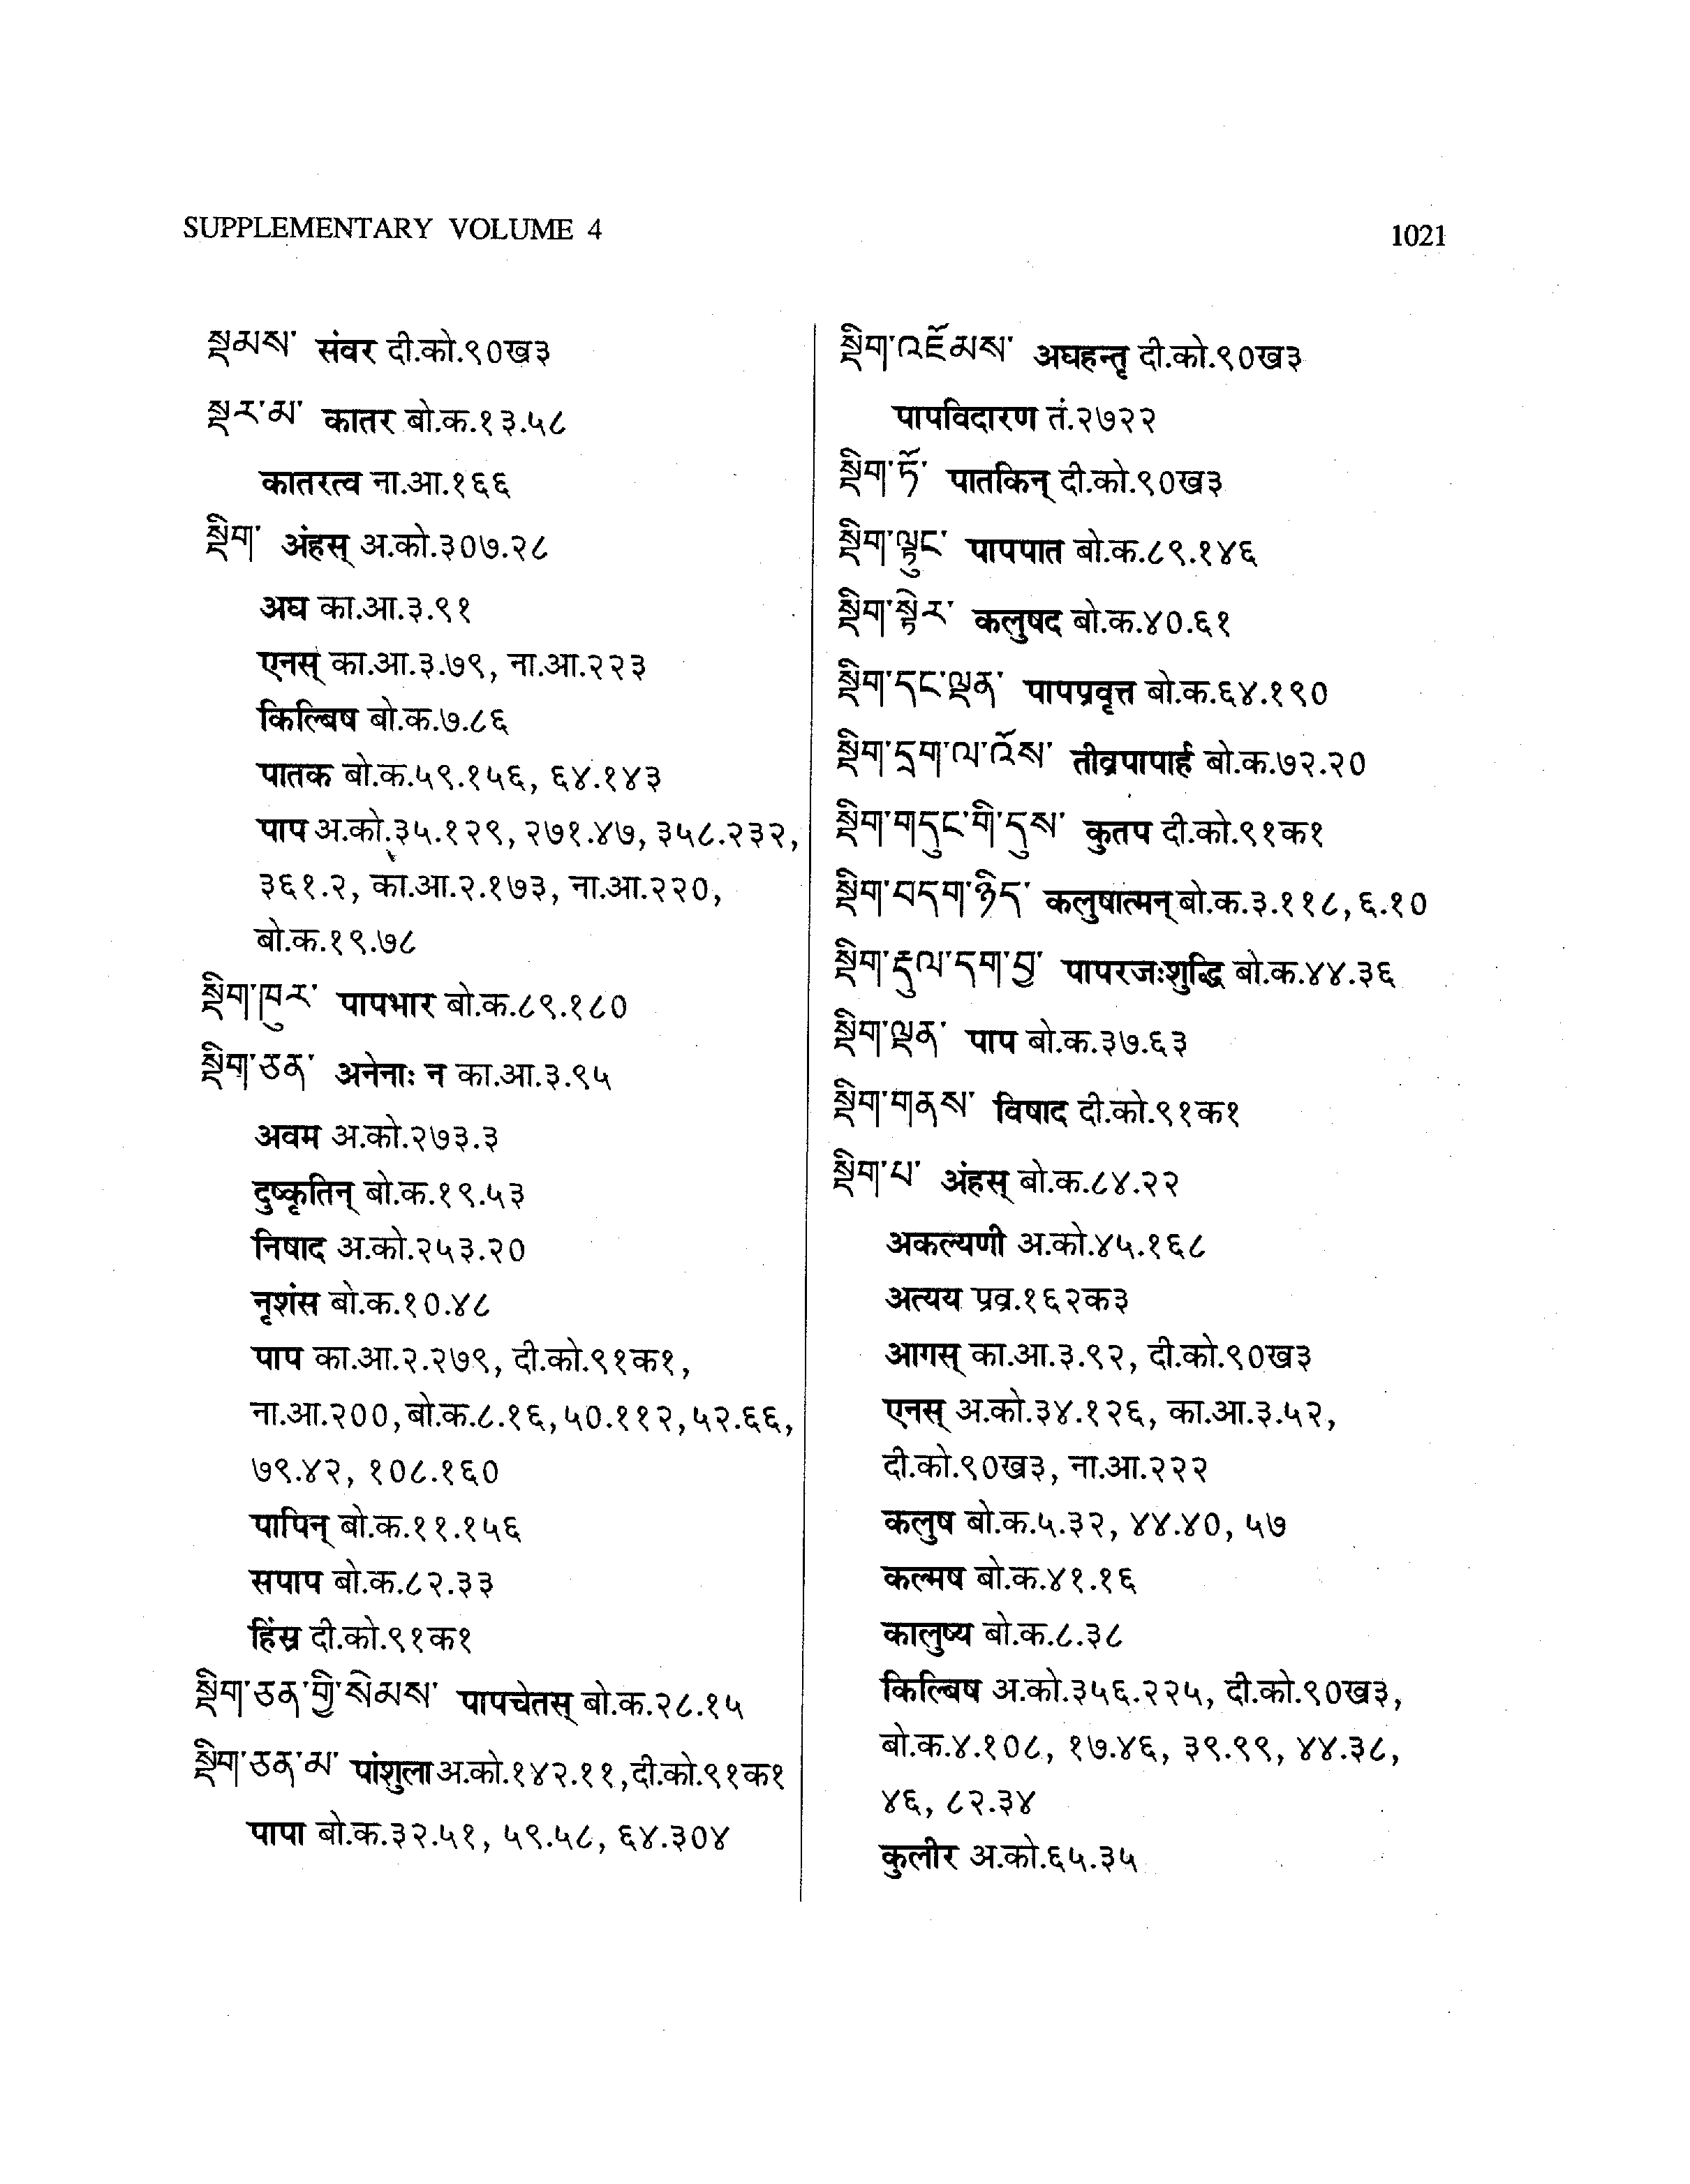 SUPPLEMENTARY VOLUME 4
1021
སྡམས་ संवर दी.को.९०ख३
སྡར་མ་ कातर बो.क.१३.५८
कातरत्व ना.आ.१६६
སྡིག་ अंहस् अ.को.३०७.२८
अघ का.आ.३.९१
एनस् का.आ.३.७९, ना.आ.२२३
किल्बिष बो.क.७.८६
पातक बो.क.५९.१५६, ६४.१४३
पाप अ.को.३५.१२९, २७१.४७, ३५८.२३२,
३६१.२, का.आ.२.१७३, ना.आ.२२०,
बो.क.१९.७८
སྡིག་ཁུར་ पापभार बो.क.८९.१८०
སྡིག་ཅན་ अनेनाः न का.आ.३.९५
अवम अ.को.२७३.३
दुष्कृतिन् बो.क.१९.५३
निषाद अ.को.२५३.२०
नृशंस बो.क.१०.४८
पाप का.आ.२.२७९, दी.को.९१क१,
ना.आ.२००, बो.क.८.१६, ५०.११२, ५२.६६,
७९.४२, १०८.१६०
पापिन् बो.क.११.१५६
सपाप बो.क.८२.३३
हिंस्र दी.को.९१क१
སྡིག་ཅན་གྱི་སེམས་ पापचेतस् बो.क.२८.१५
སྡིག་ཅན་མ་ पांशुला अ.को.१४२.११, दी.को.९१क१
पापा बो.क.३२.५१, ५९.५८, ६४.३०४
སྡིག་འཇོམས་ अघहन्तृ दी.को.९०ख३
पापविदारण तं.२७२२
སྡིག་ཏོ་ पातकिन् दी.को.९०ख३
སྡིག་ལྟུང་ पापपात बो.क.८९.१४६
སྡིག་སྟེར་ कलुषद बो.क.४०.६१
སྡིག་དང་ལྡན་ पापप्रवृत्त बो.क.६४.१९०
སྡིག་དྲག་ལ་འོས་ तीव्रपापार्ह बो.क.७२.२०
སྡིག་གདུང་གི་དུས་ कुतप दी.को.९१क१
སྡིག་བདག་ཉིད་ कलुषात्मन् बो.क.३.११८, ६.१०
སྡིག་རྡུལ་དག་བྱ་ पापरजःशुद्धि बो.क.४४.३६
སྡིག་ལྡན་ पाप बो.क.३७.६३
སྡིག་གནས་ विषाद दी.को.९१क१
སྡིག་པ་ अंहस् बो.क.८४.२२
अकल्यणी अ.को.४५.१६८
अत्यय प्रव्र.१६२क३
आगस् का.आ.३.९२, दी.को.९०ख३
एनस् अ.को.३४.१२६, का.आ.३.५२,
दी.को.९०ख३, ना.आ.२२२
कलुष बो.क.५.३२, ४४.४०, ५७
कल्मष बो.क.४१.१६
कालुष्य बो.क.८.३८
किल्बिष अ.को.३५६.२२५, दी.को.९०ख३,
बो.क.४.१०८, १७.४६, ३९.९९, ४४.३८,
४६, ८२.३४
कुलीर अ.को.६५.३५